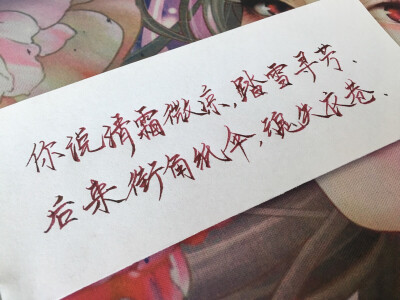 你说清霜微凉,踏雪寻芳、
后来街角纸伞,魂失衣巷.